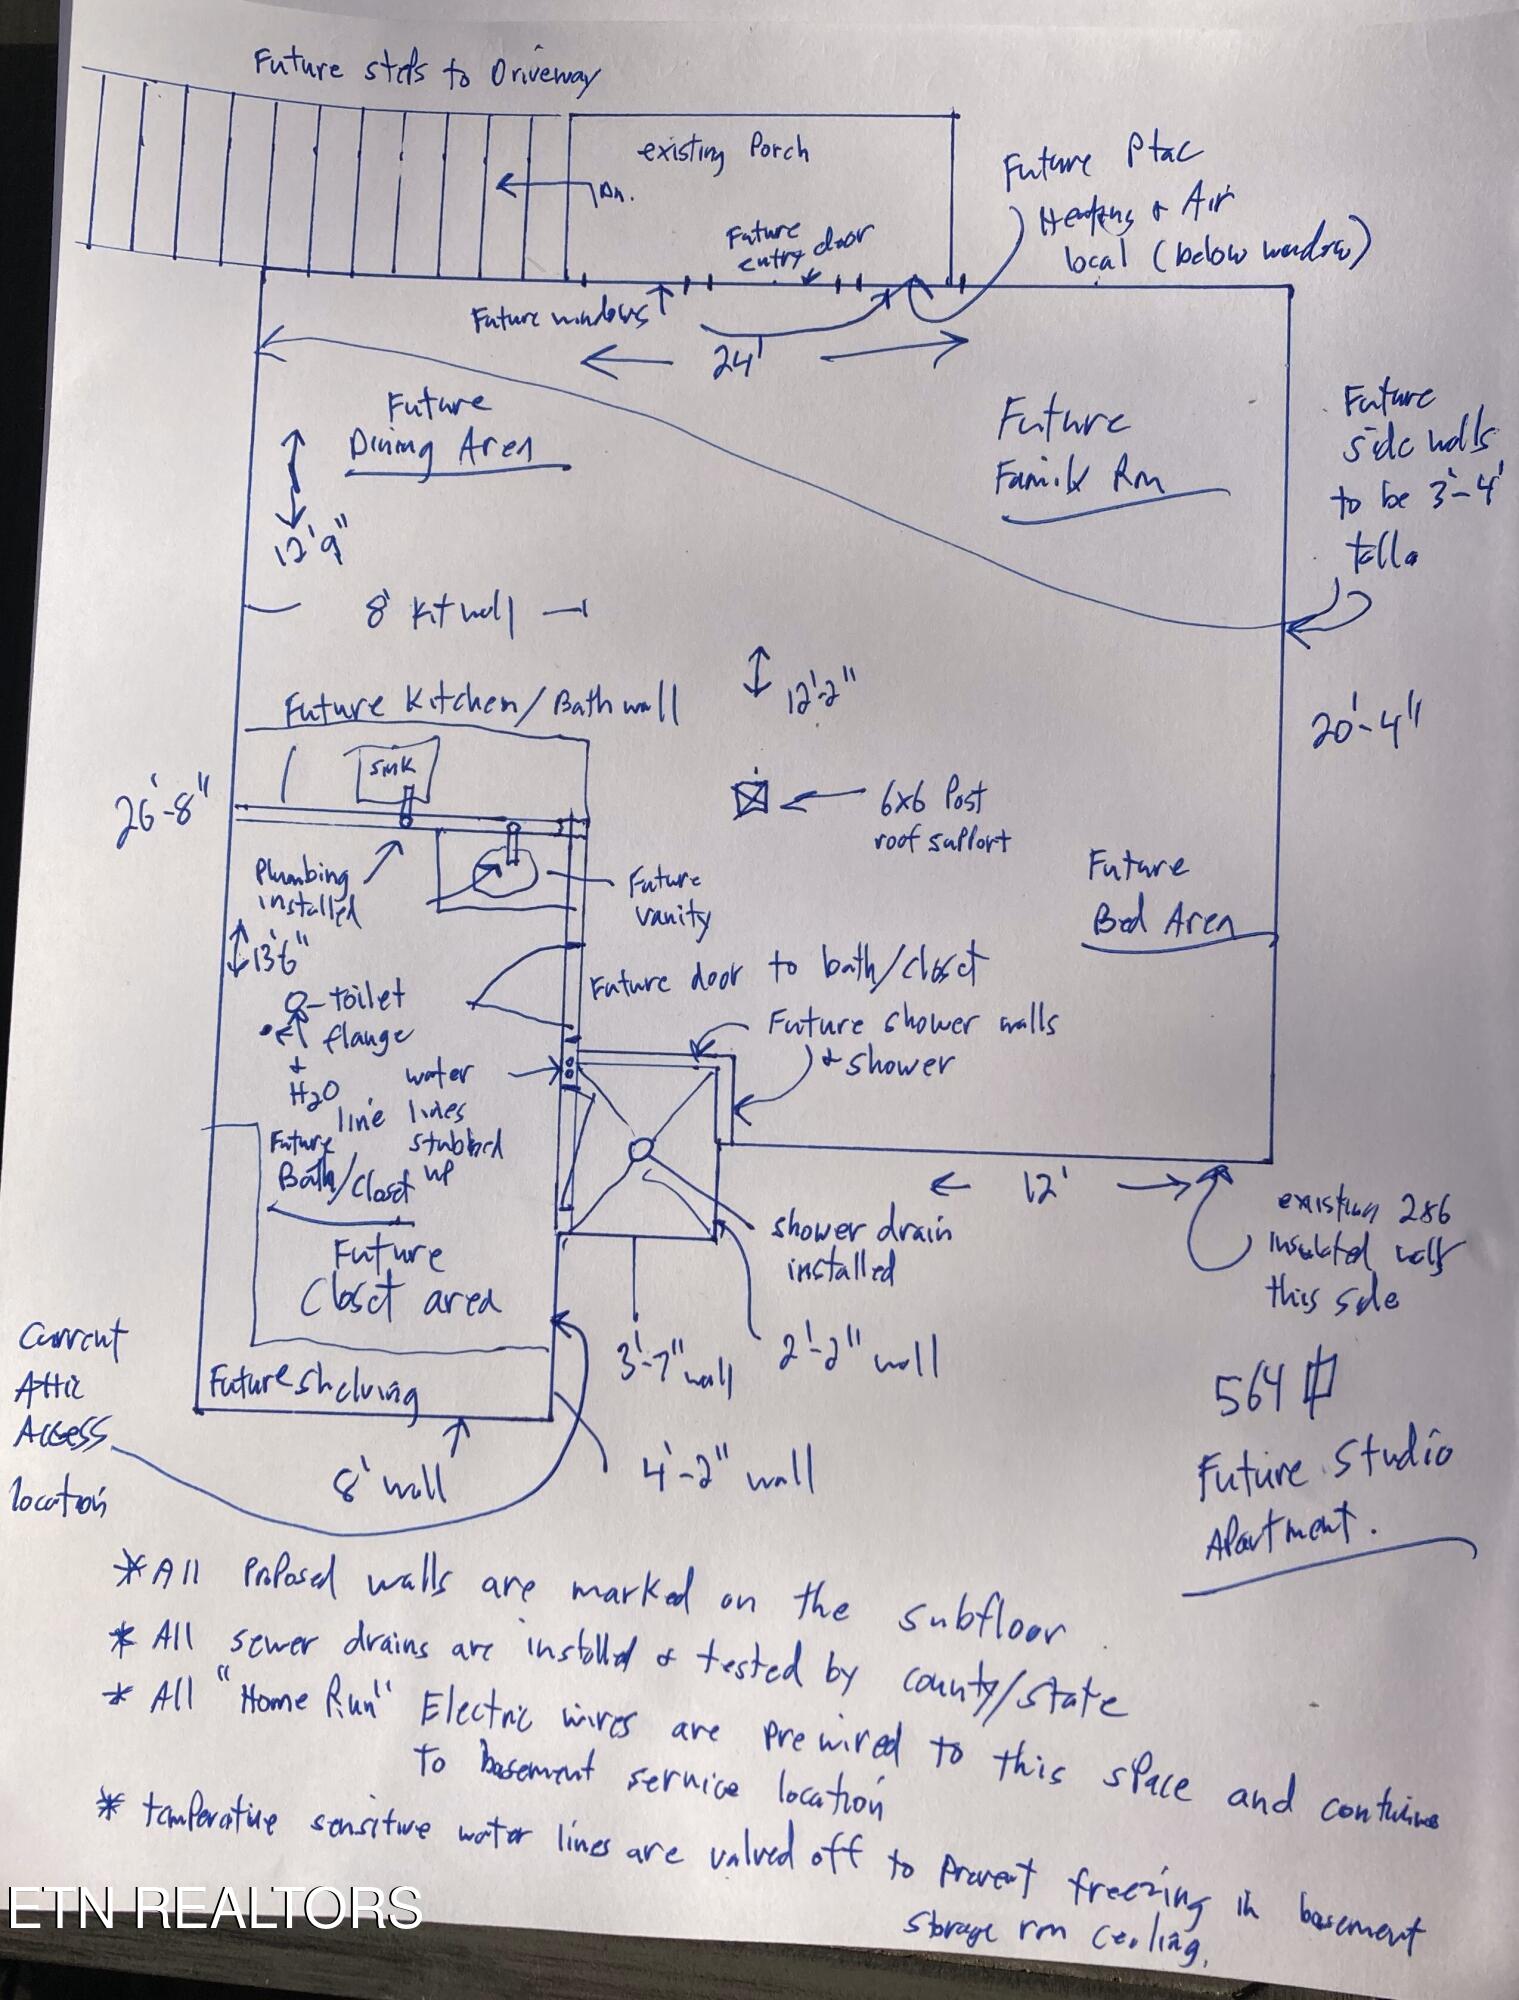 Future steps to Driveway
existing Porch
Dn.
Future
entry door
Future Ptac
Heating & Air
local (below window)
Future windows
24'
Future
Dining Area
Future
Family Rm
Future
side walls
to be 3'-4'
tall.
12'9"
8' Kit wall
Future Kitchen/Bath wall
12'-2"
20'-4"
26'-8"
sink
6x6 Post
roof support
Plumbing
installed
Future
vanity
Future
Bed Area
13'6"
toilet
flange
&
H2O
line
Future door to bath/closet
Future shower walls
& shower
water
lines
stubbed
up
Future
Bath/Closet
12'
existing 2x6
insulated walls
this side
shower drain
installed
Future
Closet area
Current
Attic
Access
location
3'-7" wall
2'-2" wall
Future Shelving
8' wall
4'-2" wall
564
Future Studio
Apartment.
* All proposed walls are marked on the subfloor.
* All sewer drains are installed & tested by county/state
* All "Home Run" Electric wires are prewired to this space and continues
to basement service location
* temperative sensitive water lines are valved off to prevent freezing in basement
storage rm ceiling.
ETN REALTORS